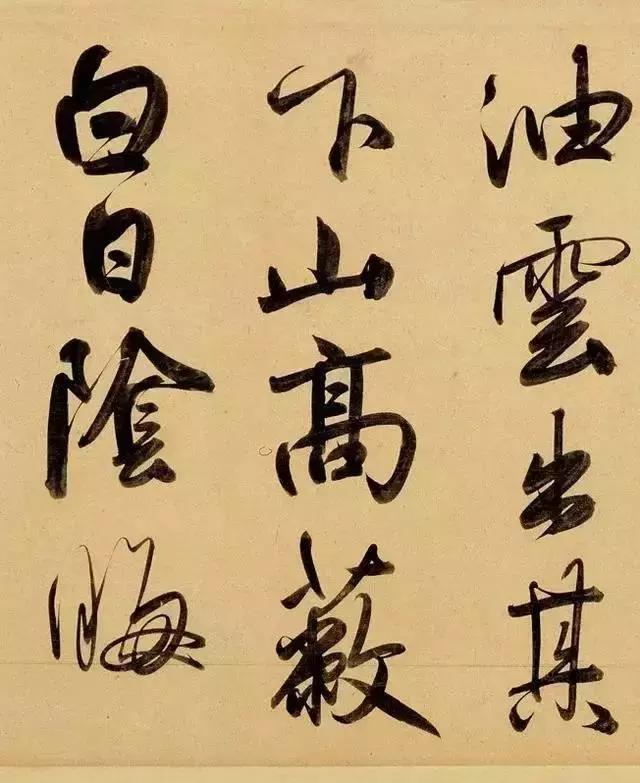 油雲出其
下山高蔽
白日陰晦